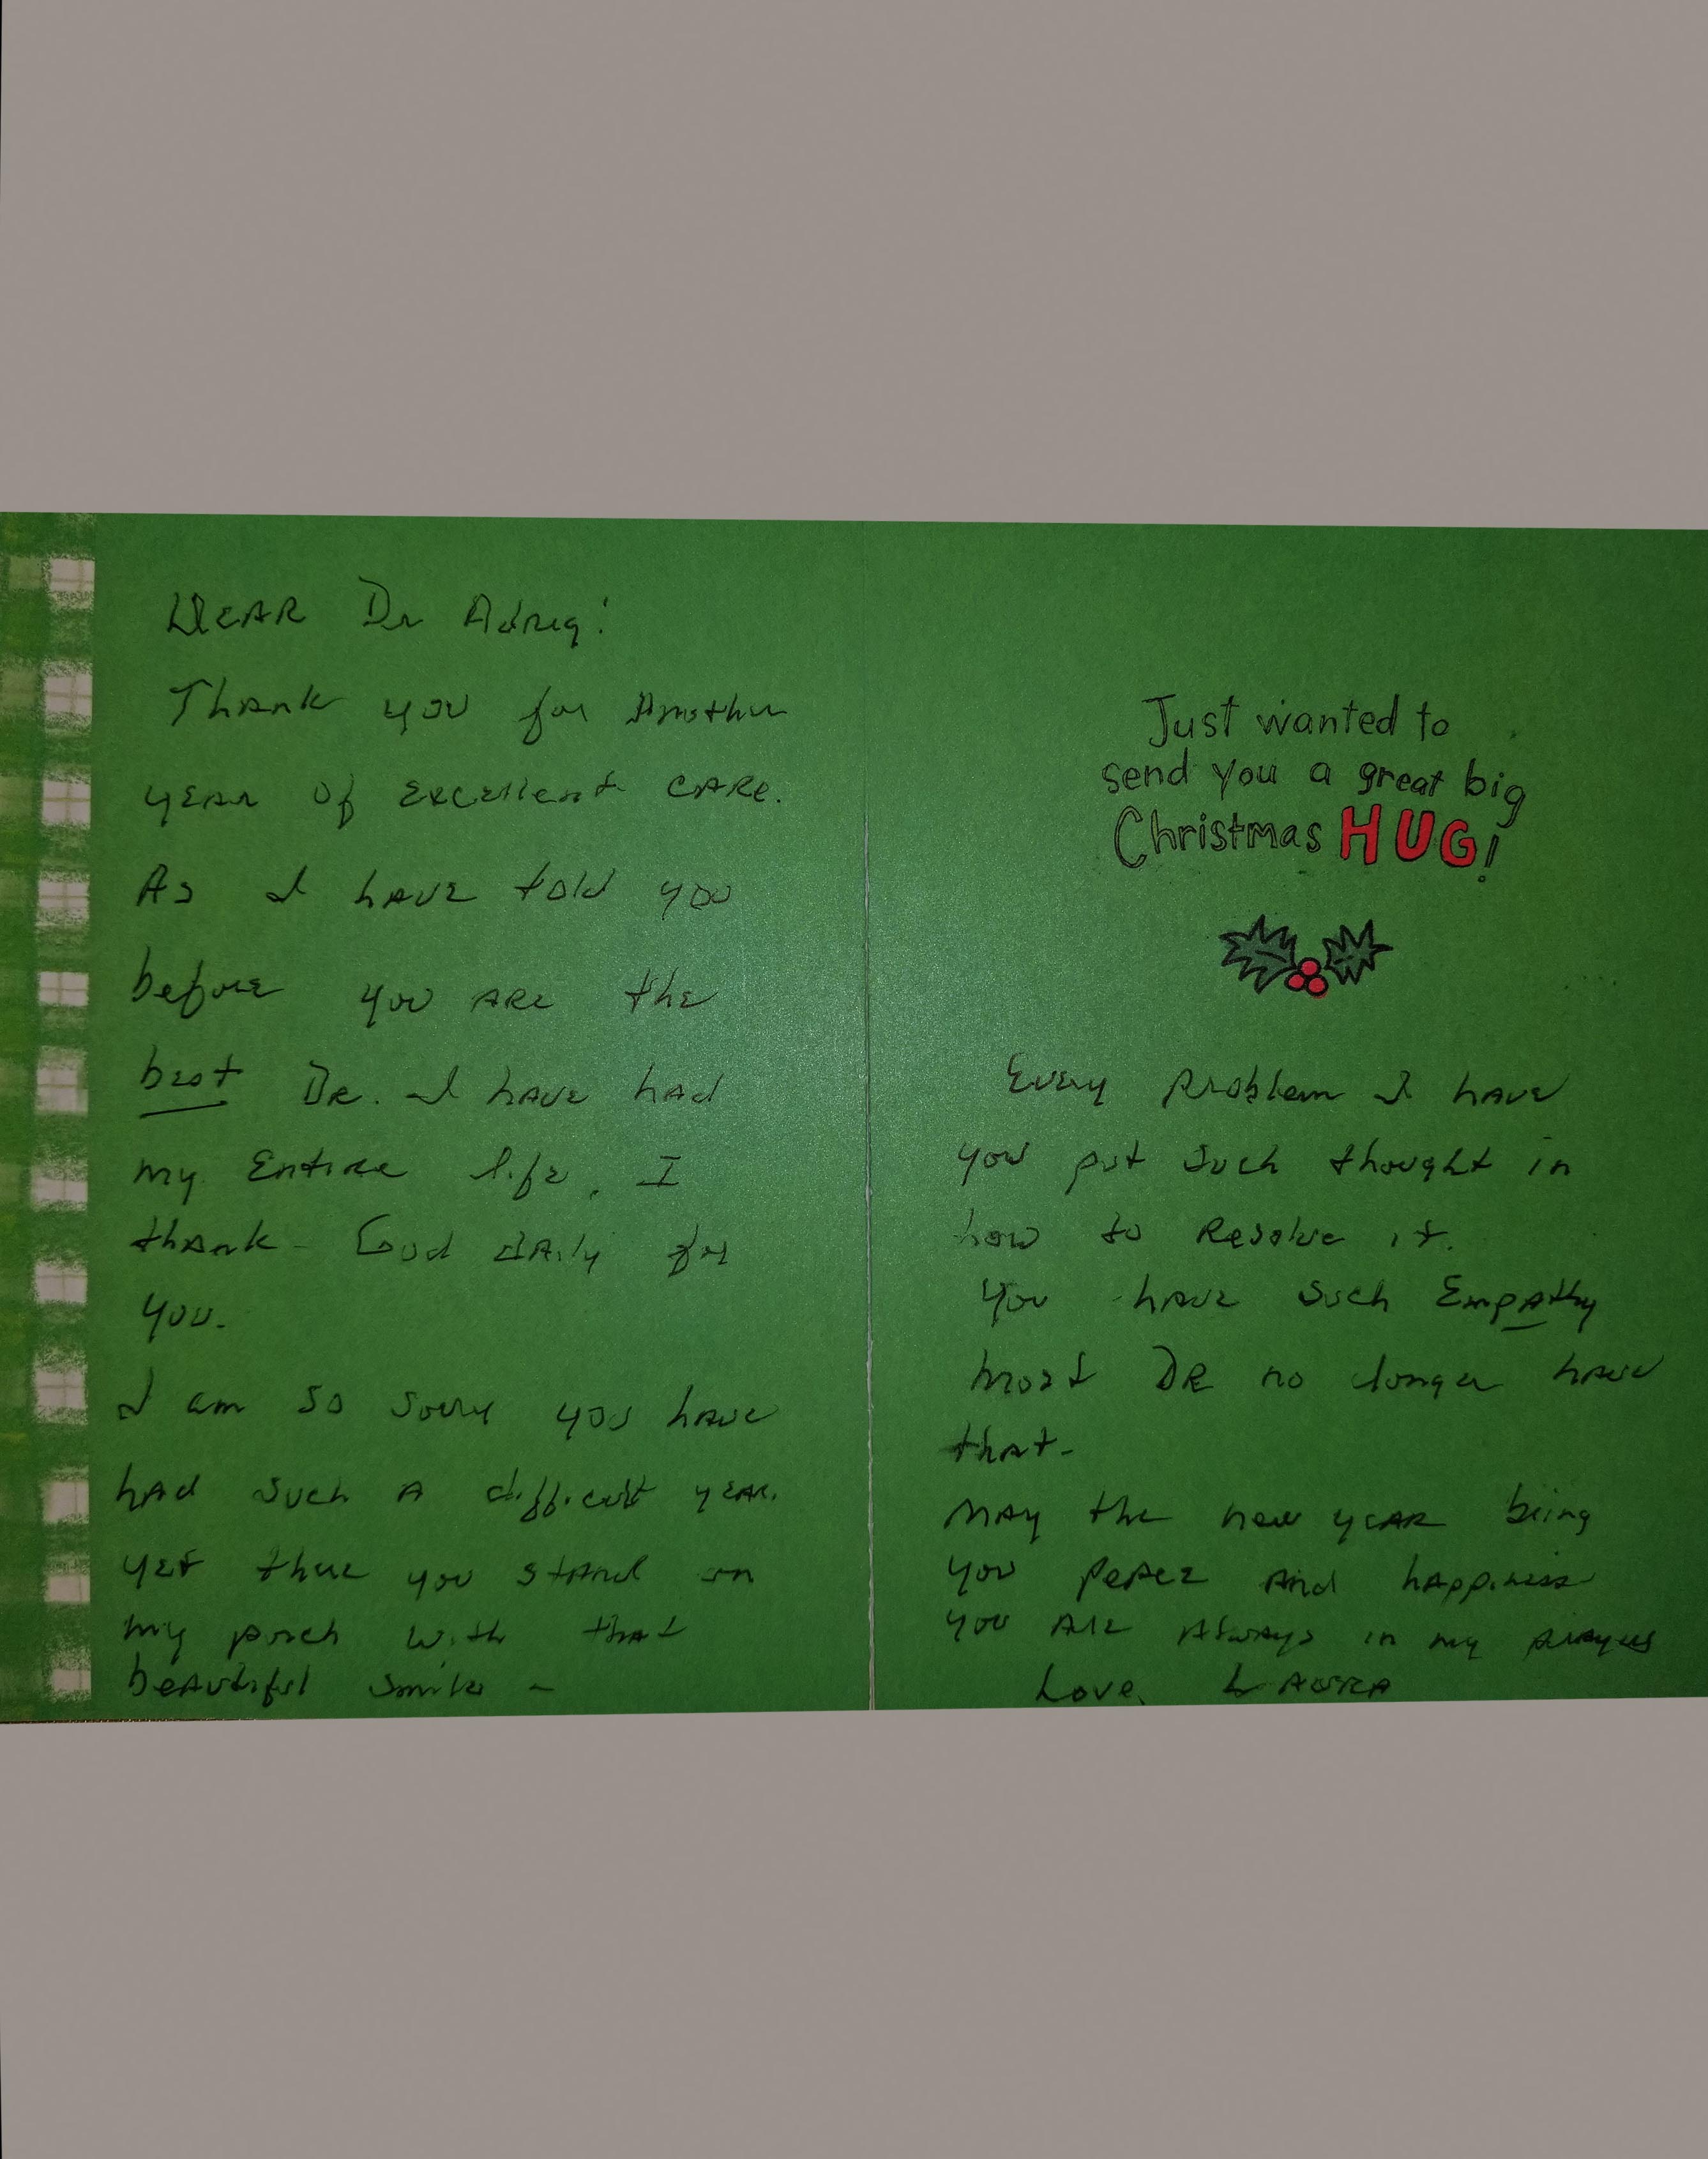 DEAR Dr
Thank you for Another
year of Excellent CARE.
As I HAVE told you
before you ARE the
best DR. I HAVE had
my Entire life. I
thank God daily for
you.
I am so sorry you have
had such A difficult year.
yet there you stand on
my porch with that
beautiful smile -
Just wanted to
send you a great big
Christmas HUG!
Every problem I have
you put such thought in
how to Resolve it.
You have such Empathy
most DR no longer have
that-
MAY the new year bring
you peace and happiness
you are Always in my prayers
Love, LAURA